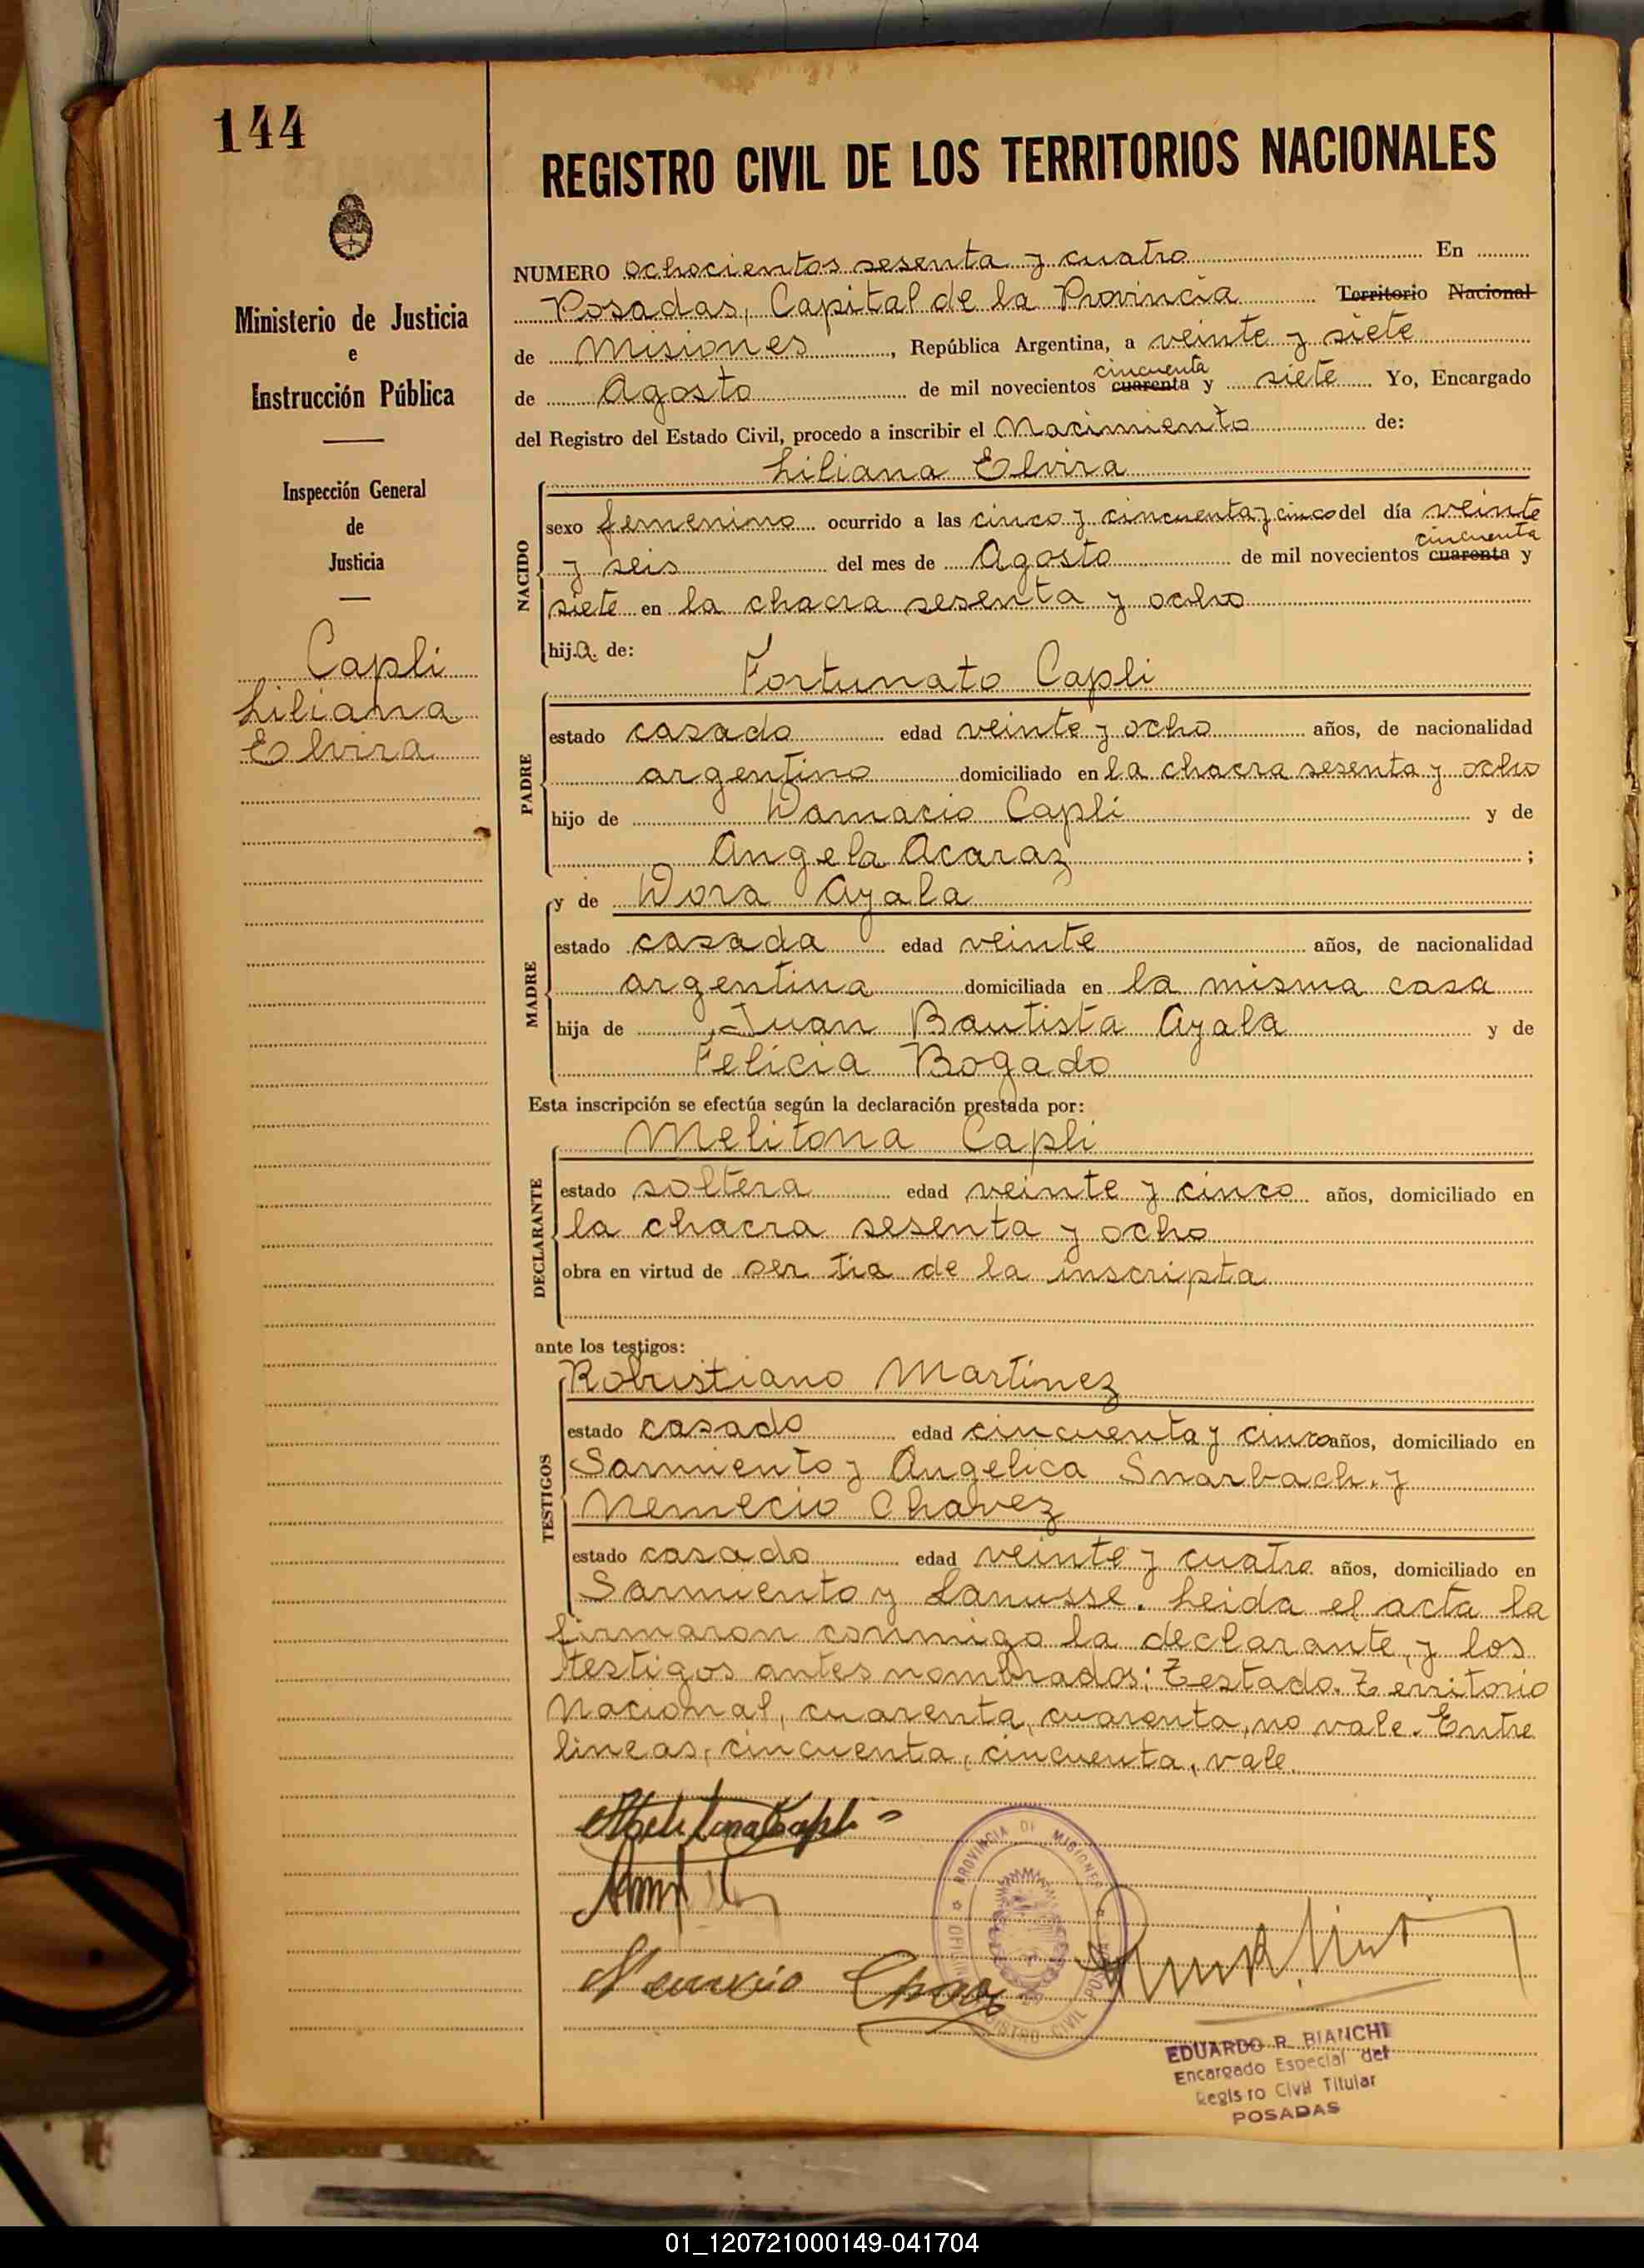 144
REGISTRO CIVIL DE LOS TERRITORIOS NACIONALES
Ministerio de Justicia
e
Instrucción Pública
Inspección General
de
Justicia
Capli
Liliana
Elvira
NUMERO ochocientos sesenta y cuatro En
Posadas, Capital de la Provincia Territorio Nacional
de Misiones, República Argentina, a veinte y siete
cincuenta
de Agosto de mil novecientos cuarenta y siete Yo, Encargado
del Registro del Estado Civil, procedo a inscribir el Nacimiento de:
Liliana Elvira
NACIDO
sexo femenino ocurrido a las cinco y cincuenta y cinco del día veinte
cincuenta
y seis del mes de Agosto de mil novecientos cuarenta y
siete en la chacra sesenta y ocho
hija de:
Fortunato Capli
PADRE
estado casado edad veinte y ocho años, de nacionalidad
argentino domiciliado en la chacra sesenta y ocho
hijo de Damacio Capli y de
Angela Acaraz ;
y de Dora Ayala
MADRE
estado casada edad veinte años, de nacionalidad
argentina domiciliada en la misma casa
hija de Juan Bautista Ayala y de
Felicia Bogado
Esta inscripción se efectúa según la declaración prestada por:
Melitona Capli
DECLARANTE
estado soltera edad veinte y cinco años, domiciliado en
la chacra sesenta y ocho
obra en virtud de ser tia de la inscripta
ante los testigos:
Robustiano Martínez
TESTIGOS
estado casado edad cincuenta y cinco años, domiciliado en
Sarmiento y Angelica Snarbach. y
Nemecio Chavez
estado casado edad veinte y cuatro años, domiciliado en
Sarmiento y Lanusse. Leida el acta la
firmaron conmigo la declarante y los
testigos antes nombrados: Testado. Territorio
Nacional, cuarenta, cuarenta, no vale. Entre
lineas, cincuenta, cincuenta, vale.
Melitona Capli
Nemecio Chavez
PROVINCIA DE MISIONES
REGISTRO CIVIL
EDUARDO R. BIANCHI
Encargado Especial del
Registro Civil Titular
POSADAS
01_120721000149-041704